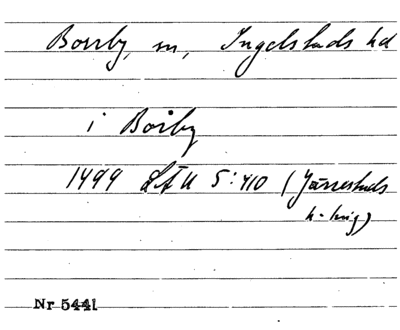 Borrby, sn, Ingelstads hd
i Boåby
1499 LÄU 5:410 (Järrestads
h-ting)
Nr 5441